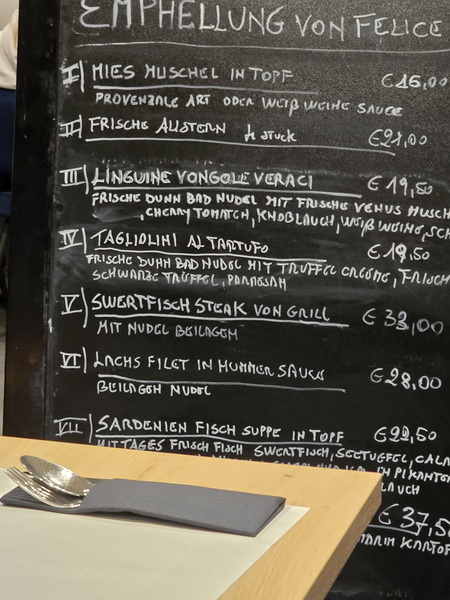 EMPHELLUNG VON FELICE
I) MIES MUSCHEL IN TOPF €16,00
PROVENZALE ART ODER WEIß WEINE SAUCE
II) FRISCHE AUSTERN STUCK €21,00
III) LINGUINE VONGOLE VERACI €19,50
FRISCHE DUNN BAD NUDEL MIT FRISCHE VENUS MUSCH
, CHERRY TOMATEN, KNOBLAUCH, WEIß WEINE, SCH
IV) TAGLIOLINI AL TARTUFO €19,50
FRISCHE DUNN BAD NUDEL MIT TRUFFEL CREME, FRISCH
SCHWARZE TRUFFEL, PARMESAN
V) SWERTFISCH STEAK VON GRILL €33,00
MIT NUDEL BEILAGEN
VI) LACHS FILET IN HUMMER SAUCE €28,00
BEILAGEN NUDEL
VII) SARDENIEN FISCH SUPPE IN TOPF
MITTAGES FRISCH FISCH SWERTFISCH, SEETUFEL, CALA
IN PIKANTER
LAUCH
€37,50
MARIN KARTOF